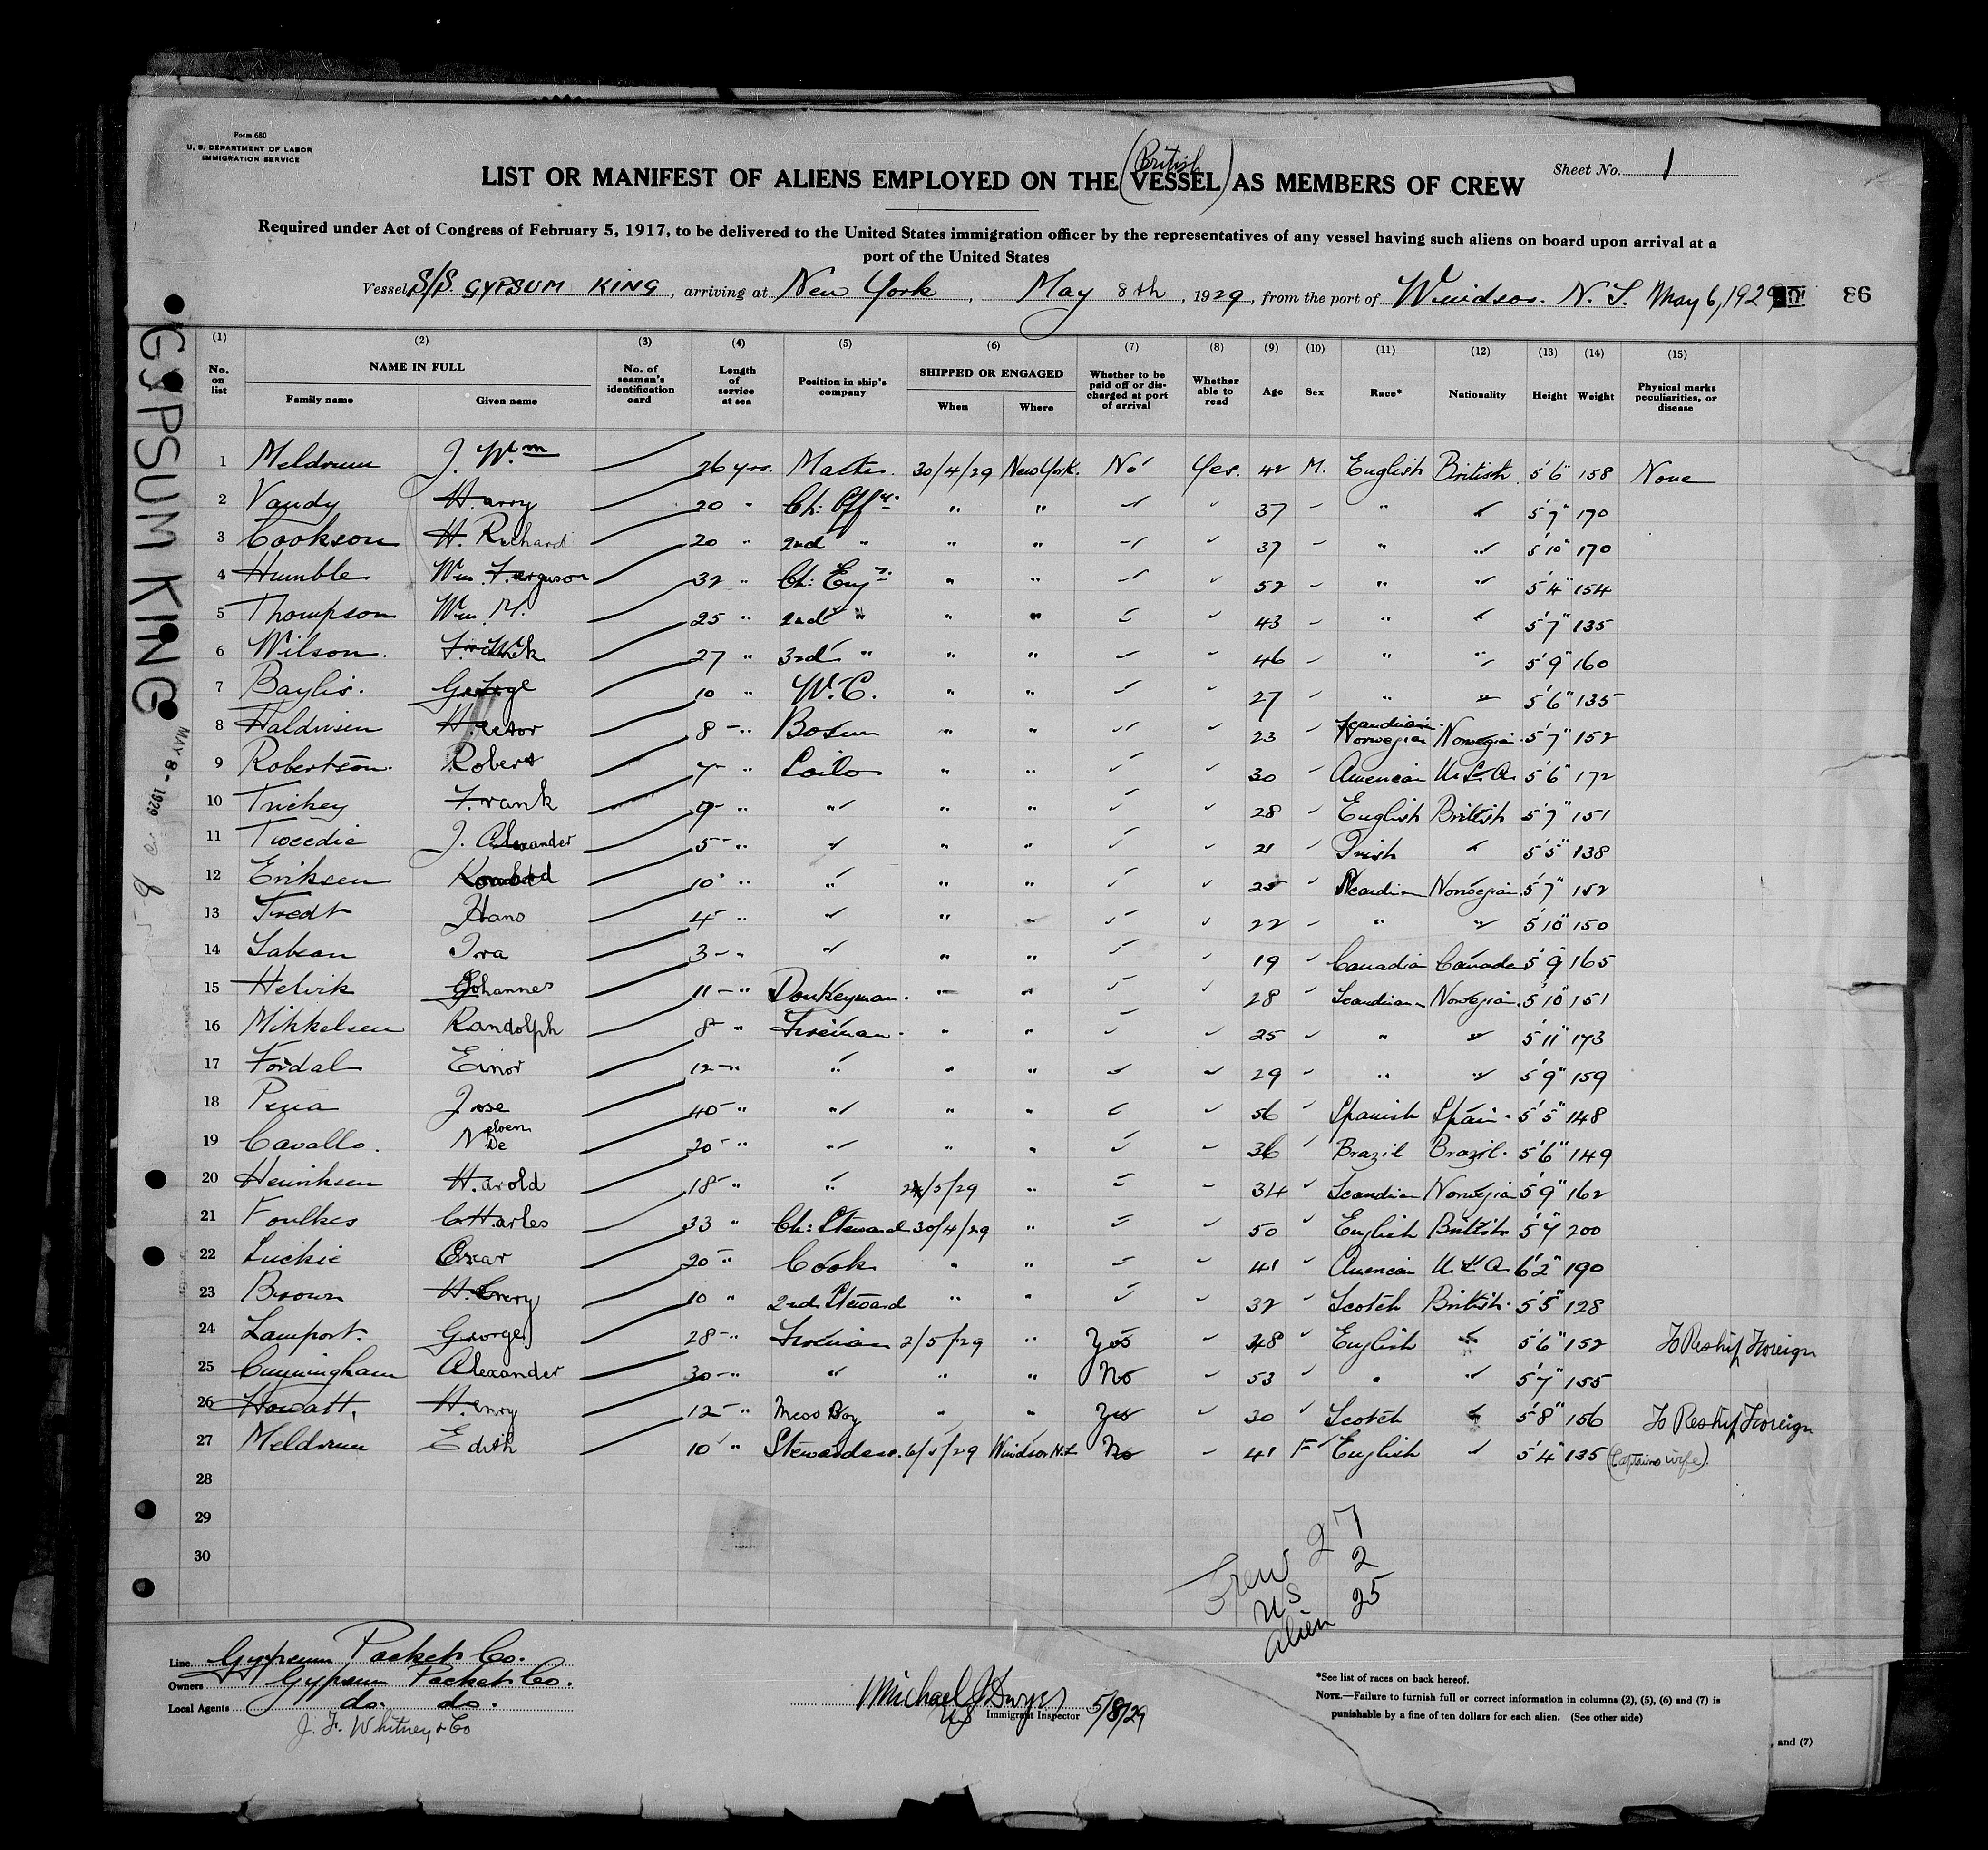 Form 680
U. S. DEPARTMENT OF LABOR
IMMIGRATION SERVICE
Sheet No. 1
(British)
LIST OR MANIFEST OF ALIENS EMPLOYED ON THE VESSEL AS MEMBERS OF CREW
Required under Act of Congress of February 5, 1917, to be delivered to the United States immigration officer by the representatives of any vessel having such aliens on board upon arrival at a
port of the United States
Vessel S/S. GYPSUM KING, arriving at New York, May 8th, 1929, from the port of Windsor. N. S. May 6, 1929 86
GYPSUM KING
MAY 8 - 1929
(1) (2) (3) (4) (5) (6) (7) (8) (9) (10) (11) (12) (13) (14) (15)
No. on list NAME IN FULL Family name Given name No. of seaman's identification card Length of service at sea Position in ship's company SHIPPED OR ENGAGED When Where Whether to be paid off or discharged at port of arrival Whether able to read Age Sex Race* Nationality Height Weight Physical marks peculiarities, or disease
1 Meldrum J. Wm 26 yrs. Master. 30/4/29 New York. No Yes. 42 M. English British 5'6" 158 None
2 Vandy Harry 20 " Ch: Offr. " " 37 " 5'7" 170
3 Cookson H. Richard 20 " 2nd " " " 37 " " 5'10" 170
4 Humble Wm. Ferguson 32 " Ch: Engr. " " 52 " " 5'4" 154
5 Thompson Wm. 25 " 2nd " " " 43 " " 5'7" 135
6 Wilson. 27 " 3rd " " " 46 " " 5'9" 160
7 Baylis. George 10 " W.C. " " 27 " " 5'6" 135
8 Haldorsen 8 " Bosun " " 23 Scandinavian Norwegian Norwegian. 5'7" 152
9 Robertson. Robert 7 " Sailor " " 30 American U.S.A. 5'6" 172
10 Trickey Frank 9 " " " " 28 English British 5'7" 151
11 Tweedie J. Alexander 5 " " " " 21 Irish " 5'5" 138
12 Eriksen 10 " " " " 25 Scandian Norwegian. 5'7" 152
13 Tredt Hans 4 " " " " 22 " " 5'10" 150
14 Ira 3 " " " " 19 Canadian Canada 5'9" 165
15 Helvik Johannes 11 " Donkeyman. " " 28 Scandian Norwegian. 5'10" 151
16 Mikkelsen Randolph 8 " Fireman. " " 25 " " 5'11" 173
17 Fordal Einor 12 " " " " 29 " " 5'9" 159
18 Pena Jose 40 " " " " 56 Spanish Spain. 5'5" 148
19 Cavallo. De 20 " " " " 36 Brazil Brazil. 5'6" 149
20 Henriksen Harold 18 " " 2/5/29 " 34 Scandian Norwegian 5'9" 162
21 Foulkes Charles 33 " Ch: Steward 30/4/29 " 50 English British 5'7" 200
22 Luckie Oscar 20 " Cook " " 41 American U.S.A. 6'2" 190
23 Brown 10 " 2nd. Steward " " 32 Scotch British. 5'5" 128
24 Lamport. George 28 " Fireman 2/5/29 " Yes 48 English " 5'6" 152 To Reship Foreign
25 Cunningham Alexander 30 " " " " No 53 " " 5'7" 155
26 Howatt, Henry 12 " Mess Boy " " Yes 30 Scotch " 5'8" 156 To Reship Foreign
27 Meldrum Edith 10 " Stewardess. 6/5/29 Windsor N.S. No 41 F English " 5'4" 135 (Captains wife).
28
29
30
Crew 27
US 2
Alien 25
Line Gypsum Packet Co.
Owners Gypsum Packet Co.
Local Agents do. do.
J. F. Whitney & Co
Michael J Dwyer 5/8/29
US Immigrant Inspector
*See list of races on back hereof.
NOTE.—Failure to furnish full or correct information in columns (2), (5), (6) and (7) is
punishable by a fine of ten dollars for each alien. (See other side)
, and (7)